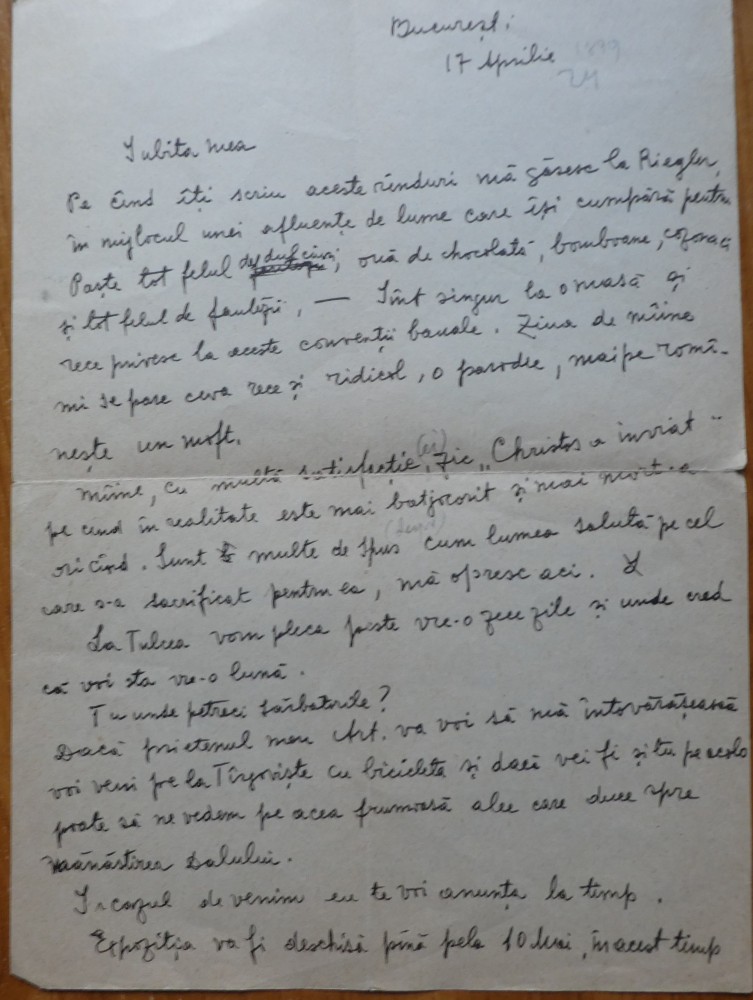 București
17 Aprilie
Iubita mea
Pe cînd îți scriu aceste rînduri mă găsesc la Riegler,
în mijlocul unei afluențe de lume care își cumpără pentru
Paște tot felul de, ouă de chocolată, bomboane, cozonaci
și tot felul de fantezii, — Sînt singur la o masă și
rece privesc la aceste convenții banale. Ziua de mîine
mi se pare ceva rece și ridicol, o parodie, mai pe romî-
nește un moft.
Mîine, cu multă satisfacție (ei) zic „Christos a inviat"
pe cend în realitate este mai batjocorit și mai mort-a
ori cînd. Sunt multe de spus cum lumea salută pe cel
care s-a sacrificat pentru ea, mă opresc aci.
La Tulcea vom pleca peste vre-o zece zile și unde cred
că voi sta vre-o lună.
Tu unde petreci sărbatorile?
Dacă prietenul meu Art. va voi să mă întovărășească
voi veni pe la Tîrgoviște cu bicicleta și dacă vei fi și tu pe acolo
poate să ne vedem pe acea frumoasă alee care duce spre
mănăstirea Dalului.
In cazul de venim eu te voi anunța la timp.
Expoziția va fi deschisă pînă pela 10 Mai, în acest timp